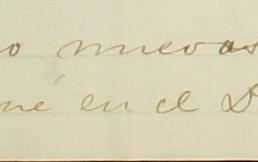 o nuevas
né en el D